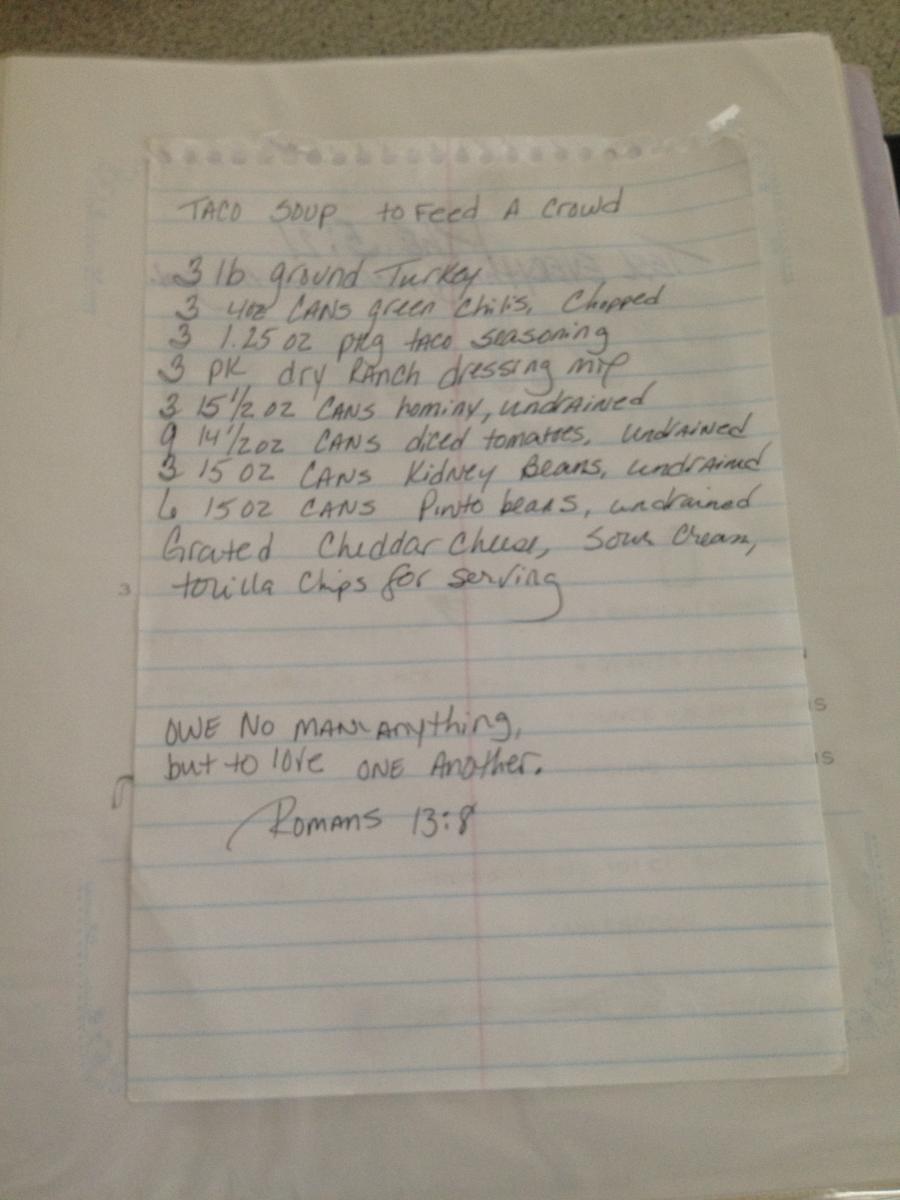 TACO SOUP to Feed A Crowd
3 lb ground Turkey
3 4oz CANS green Chilis, Chopped
3 1.25 oz pkg taco seasoning
3 PK dry RANCH dressing mix
3 15 1/2 oz CANS hominy, undrained
9 14 1/2 oz CANS diced tomatoes, undrained
3 15 oz CANS Kidney Beans, undrained
6 15 oz CANS Pinto beans, undrained
Grated Cheddar Cheese, Sour Cream,
torilla Chips for serving
OWE NO MAN anything,
but to love ONE Another.
Romans 13:8